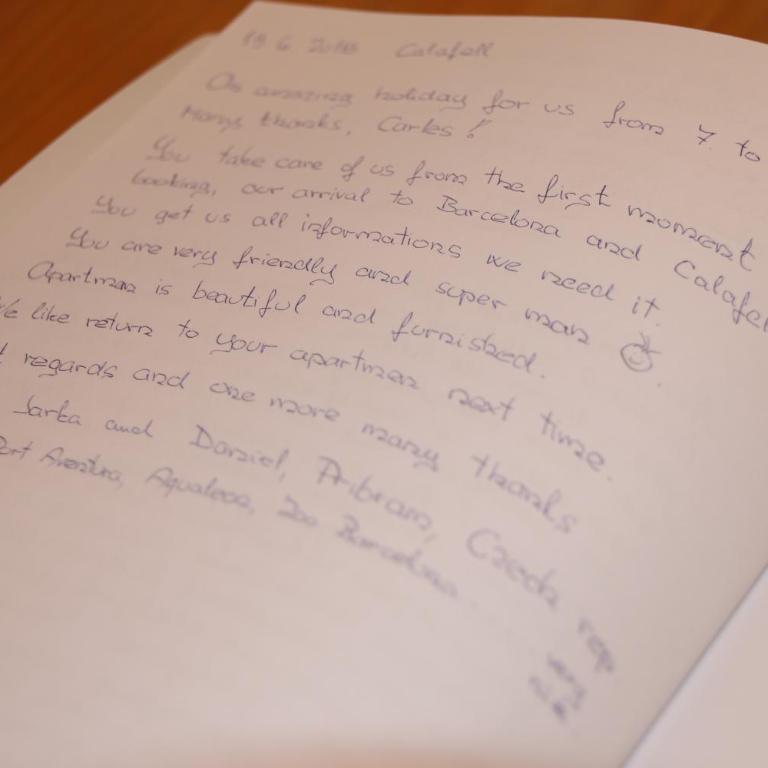 19.6. 2018 Calafell
On amazing holiday for us from 7. to
Many thanks, Carles!
You take care of us from the first moment
booking, our arrival to Barcelona and Calafel
You get us all informations we need it.
You are very friendly and super man
Apartman is beautiful and furnished.
We like return to your apartmen next time.
regards and one more many thanks
Jarka and Daniel, Pribram, Czech rep
Port Aventura, Aqualeon, Zoo Barcelona ... very